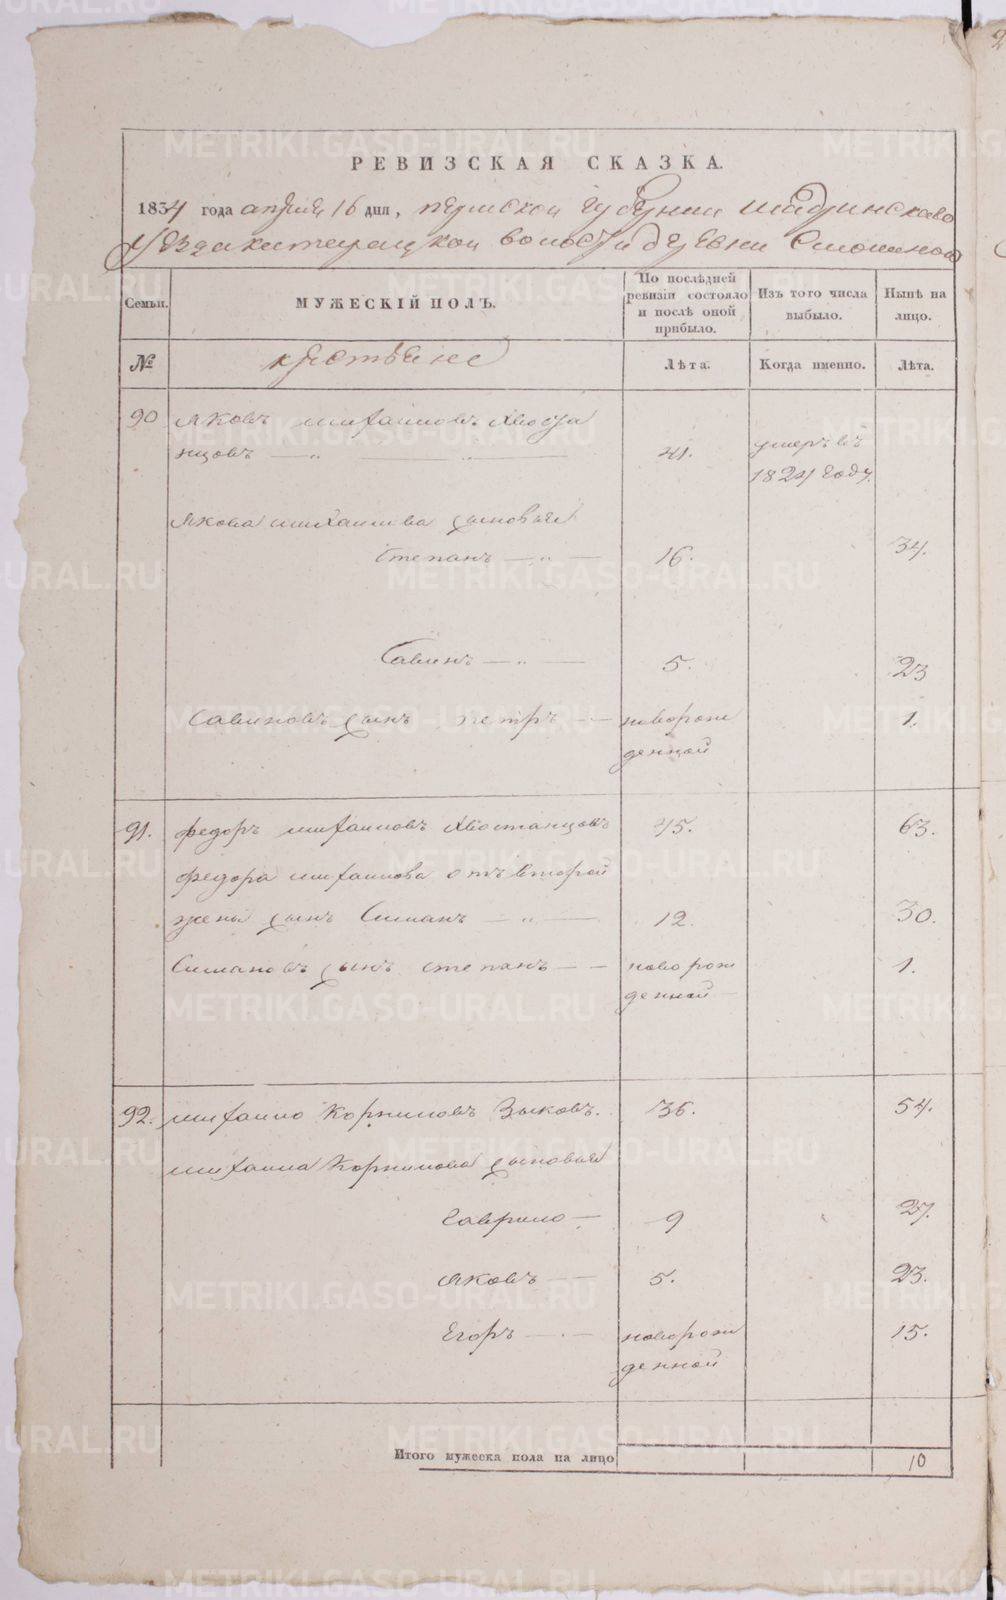 РЕВИЗСКАЯ СКАЗКА.
1834 года апреля 16 дня, пермской губернии шадринскаво
уезда волости деревни
Семьи. МУЖЕСКІЙ ПОЛЪ. По послѣдней ревизіи состояло и послѣ оной прибыло. Изъ того числа выбыло. Нынѣ на лицо.
№ крестьяне Лѣта. Когда именно. Лѣта.
90 яковъ михаиловъ Хвоста
нцовъ — „ — „ — 41. умеръ въ
1824 году.
якова михаилова сыновья
Степанъ — „ — 16. 34.
Савинъ — „ — 5. 23
Савиновъ сынъ петръ — — новорож 1.
денной
91. федоръ михаиловъ Хвостанцовъ 45. 63.
федора михаилова отъ второй
жены сынъ Симанъ — „ — 12. 30.
Симановъ сынъ степанъ — — новорож 1.
денной
92. михаило Корниловъ Зыковъ. 36. 54.
михаила Корнилова сыновья
Гаврило — 9 27.
яковъ — — 5. 23.
Егоръ — . — новорож 15.
денной
Итого мужеска пола на лицо 10
METRIKI.GASO-URAL.RU